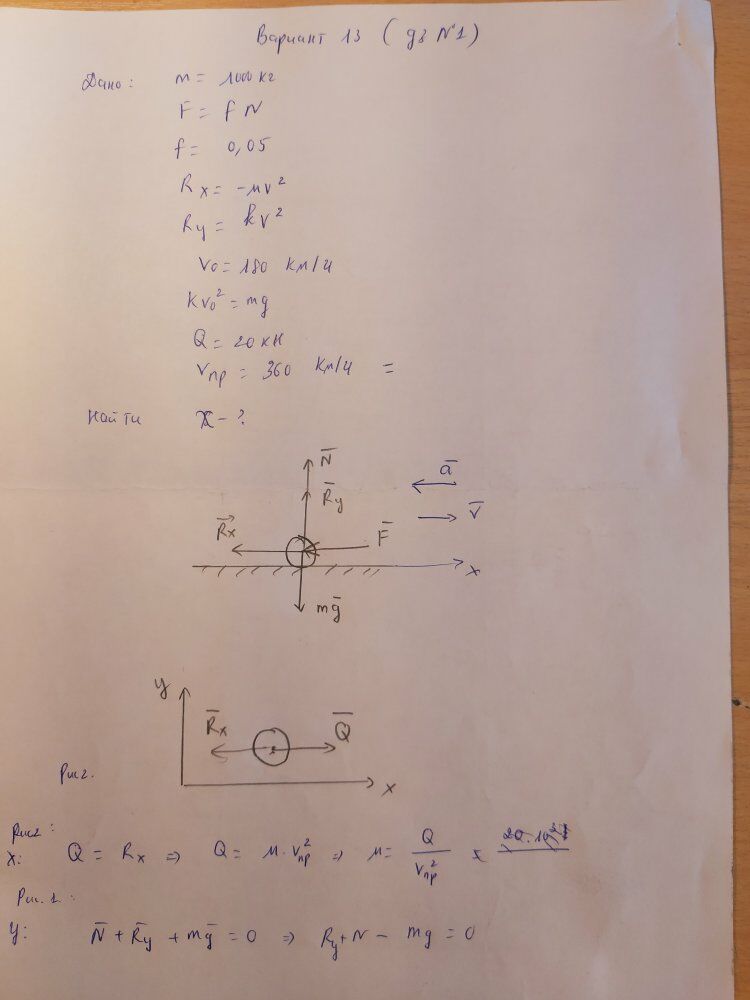 Вариант 13 (дз №1)
Дано: m = 1000 кг
F = f N
f = 0,05
Rx = -μv²
Ry = kv²
v₀ = 180 км/ч
kv₀² = mg
Q = 20 кН
vпр = 360 км/ч =
Найти X - ?
N̅
R̅y
a̅
v̅
R⃗x
F̅
x
mg̅
y
R̅x
Q̅
Рис2.
x
Рис2:
x: Q = Rx ⇒ Q = μ·vпр² ⇒ μ = Q/vпр²
Рис. 1. :
y: N̅ + R̅y + mg̅ = 0 ⇒ Ry + N - mg = 0